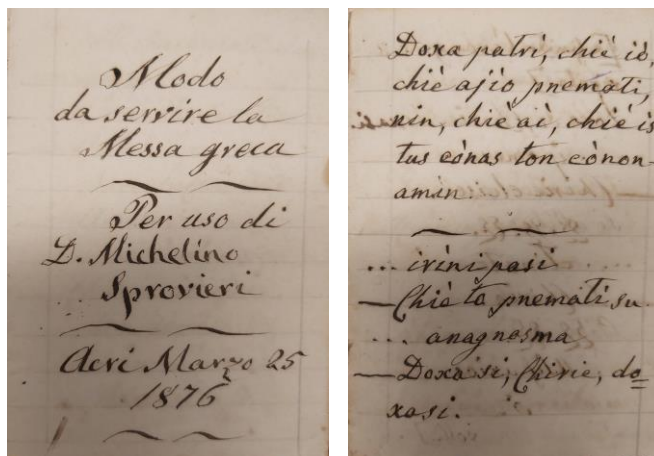 Modo
da servire la
Messa greca
Per uso di
D. Michelino
Sprovieri
Acri Marzo 25
1876
Doxa patri, chiè iò,
chiè ajío pnemati,
nin, chiè aì, chiè is
tus eónas ton eónon-
amin
... iríni pasi
— Chiè to pnemati su
... anagnosma
— Doxa si, Chirie, do=
xasi.